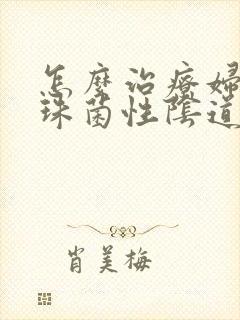 怎麼治療婦
珠菌性陰道
肖美梅